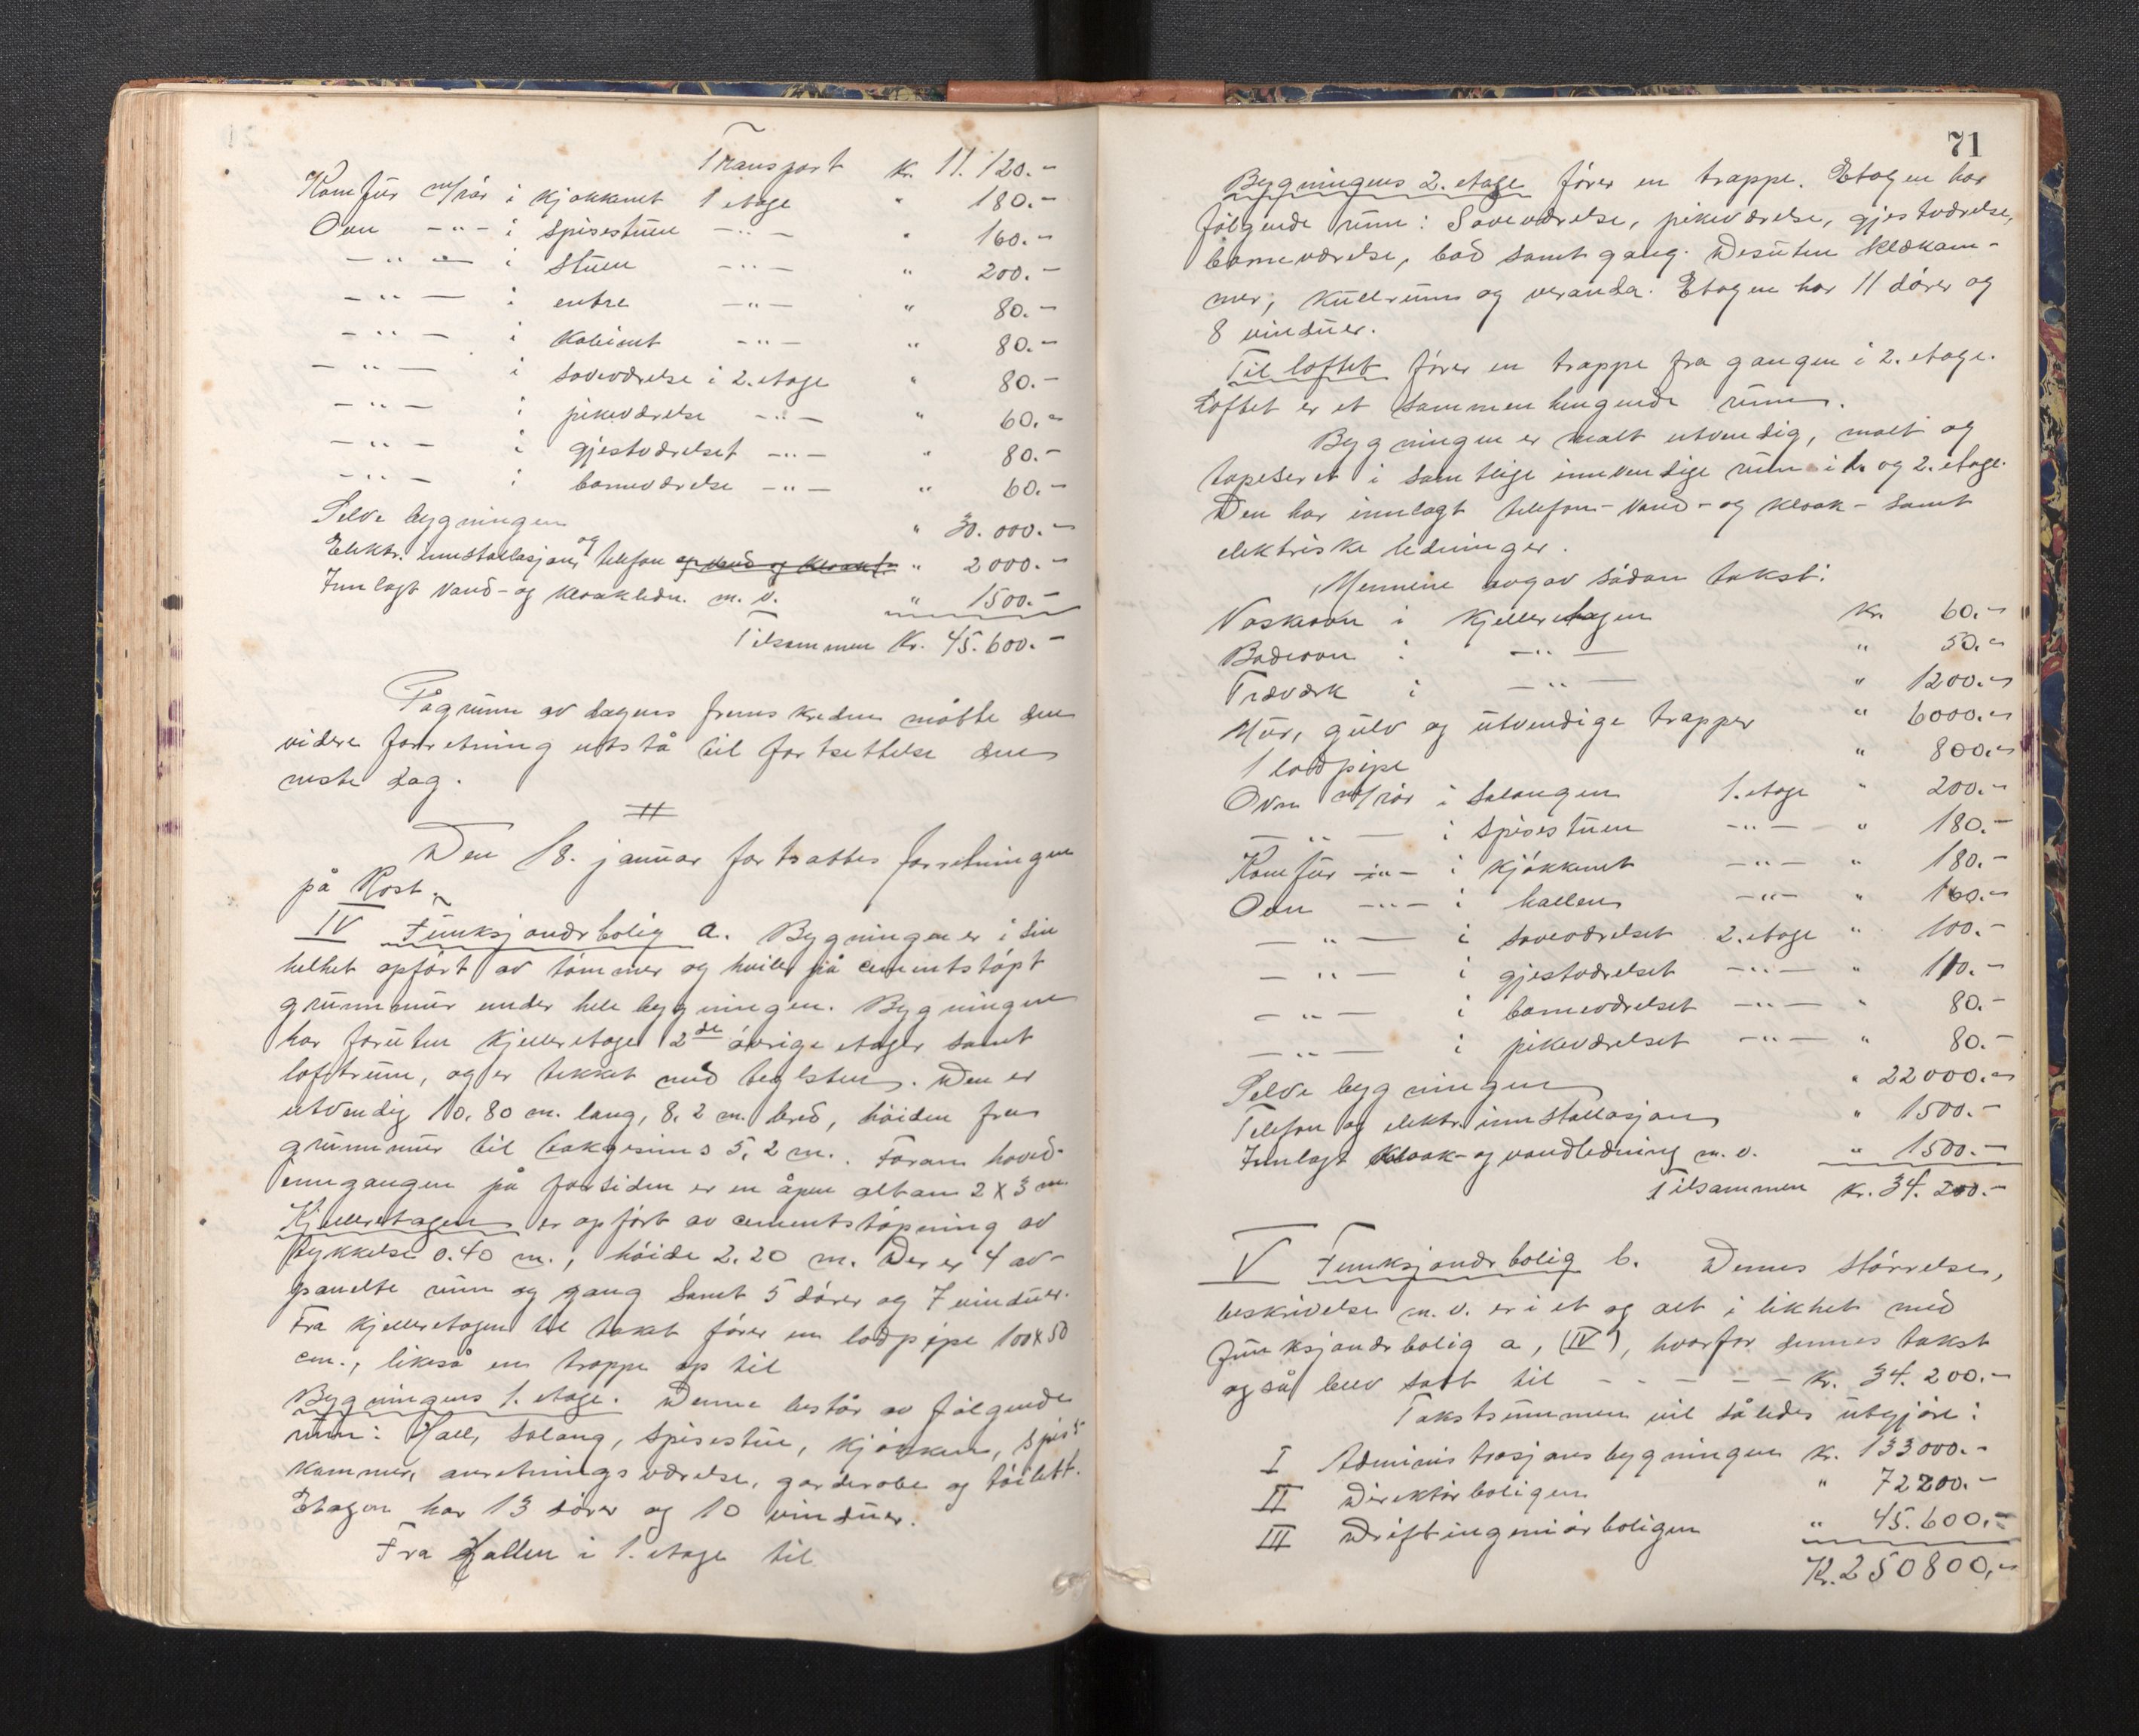 Transport kr. 11.120.-
Komfür m/rör i kjøkkenet 1 etage " 180.-
Ovn -"- i spisestüen -"- " 160.-
-"- i stüen -"- " 200.-
-"- i entre -"- " 80.-
-"- i kabinet -"- " 80.-
-"- i soveværelse i 2. etage " 80.-
-"- i pikeværelse -"- " 60.-
-"- i gjesteværelset -"- " 80.-
-"- i barneværelse -"- " 60.-
Selve bygningen " 30.000.-
Elektr. innstallasjon, og telefon og vand og kloakl. " 2000.-
Innlagt vand- og kloakledn. m.v. " 1500.-
Tilsammen kr. 45.600.-
På grünn av dagens fremskreden måtte den
videre forretning utstå til fortsettelse den
neste dag.
Den 18. januar fortsattes forretningen
på Rost.
IV Fünksjonærbolig a. Bygningen er i sin
helhet opført av tømmer og hviler på cementstøpt
grünnmür under hele bygningen. Bygningen
har forüten kjelleretage 2de øvrige etager samt
loftsrüm, og er tekket med teglsten. Den er
utvendig 10,80 m. lang, 8,2 m. bred, høiden fra
grünnmür til takgesims 5,2 m. Foran hoved-
inngangen på forsiden er en åpen altan 2 x 3 m
Kjelleretagen er opført av cementstøpning av
tykkelse 0.40 m., høide 2.20 m. Der er 4 av-
panelte rüm og gang samt 5 dører og 7 vindüer.
Fra kjelleretagen til taket fører en lodpipe 100x50
cm., likeså en trappe op til
Bygningens 1. etage. Denne består av følgende
rüm: Hall, salong, spisestüe, kjøkken, spis-
kammer, anretningsværelse, garderobe og toilett.
Etagen har 13 dører og 10 vindüer.
Fra Hallen i 1. etage til
71
Bygningens 2. etage fører en trappe. Etagen har
følgende rüm: Soveværelse, pikeværelse, gjesteværelse,
barneværelse, bad samt gang. Desüten klækam-
mer, küllrüm og veranda. Etagen har 11 dører og
8 vindüer.
Til loftet fører en trappe fra gangen i 2. etage.
Loftet er et sammenhengende rüm.
Bygningen er malt utvendig, malt og
tapeseret i samtlige innvendige rüm i 1. og 2. etage.
Den har innlagt telefon- vand- og kloak- samt
elektriske ledninger.
Mennene avgav sådan takst:
Vaskeovn i kjelleretagen kr. 60.-
Badeovn i -"- " 50.-
Træværk i -"- " 1200.-
Mür, gülv og ütvendige trapper " 6000.-
1 lodpipe " 800.-
Ovn m/rör i salongen 1. etage " 200.-
-"- i spisestüen -"- " 180.-
Komfür -"- i kjøkkenet -"- " 180.-
Ovn -"- i hallen -"- " 160.-
-"- i soveværelset 2. etage " 100.-
-"- i gjesteværelset -"- " 110.-
-"- i barneværelset -"- " 80.-
-"- i pikeværelset -"- " 80.-
Selve bygningen " 22000.-
Telefon og elektr. innstallasjon " 1500.-
Innlagt kloak- og vandledning m.v. " 1500.-
Tilsammen kr. 34.200.-
V Funksjonærbolig b. Dennes størrelse,
beskrivelse m.v. er i et og alt i likhet med
fünksjonærbolig a, (IV), hvorfor dennes takst
også blev satt til - - - - - kr. 34.200.-
Takstsümmen vil således ütgjøre:
I Administrasjonsbygningen kr. 133000.-
II Direktørboligen " 72200.-
III Driftingeniørboligen " 45.600.-
Kr. 250800.-